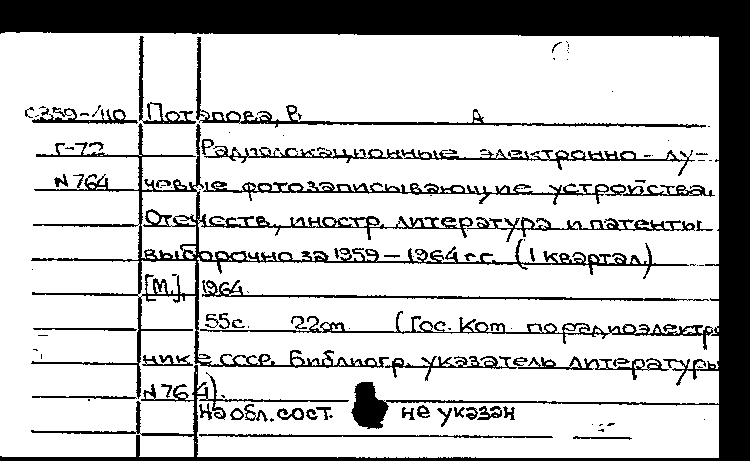 С359-/110 Потапова, В А
Г-72 Радиолокационные электронно-лу-
N764 чевые фотозаписывающие устройства.
Отечеств., иностр. литература и патенты
выборочно за 1959-1964 гг. (1 квартал.)
[М.], 1964.
55с. 22cm (Гос. Ком. по радиоэлектро
нике СССР. Библиогр. указатель литературы
N764).
на обл. сост. не указан